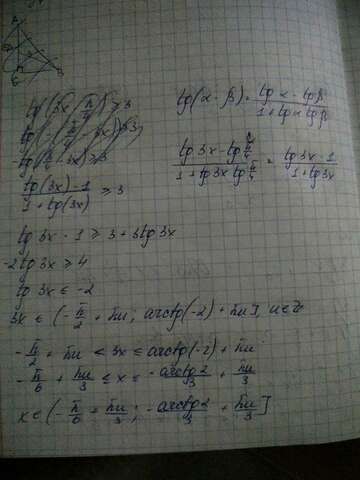 tg(3x - π/4) ≥ 3
tg(α - β) = (tg α - tg β)/(1 + tg α tg β)
(tg 3x - tg π/4)/(1 + tg 3x tg π/4) = (tg 3x - 1)/(1 + tg 3x)
(tg(3x) - 1)/(1 + tg(3x)) ≥ 3
tg 3x - 1 ≥ 3 + 3tg 3x
-2tg 3x ≥ 4
tg 3x ≤ -2
3x ∈ (-π/2 + πn; arctg(-2) + πn], n∈Z
-π/2 + πn < 3x ≤ arctg(-2) + πn
-π/6 + πn/3 ≤ x ≤ -arctg2/3 + πn/3
x ∈ (-π/6 + πn/3; -arctg2/3 + πn/3]